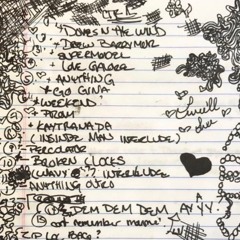 CTRL
"DOVES IN THE WIND
+ DREW BARRYMORE
SUPERMODEL
+ LOVE GALORE
+ ANYTHING
* GO GINA
* WEEKEND
* PROM
+ KAYTRANADA
(INSIDER MAN INTERLUDE)
PERCOLATOR
BROKEN CLOCKS
(WAVY) ? INTERLUDE
ANYTHING
DEM DEM DEM AYYY!
cant remember
ZIP LOC BAGS?